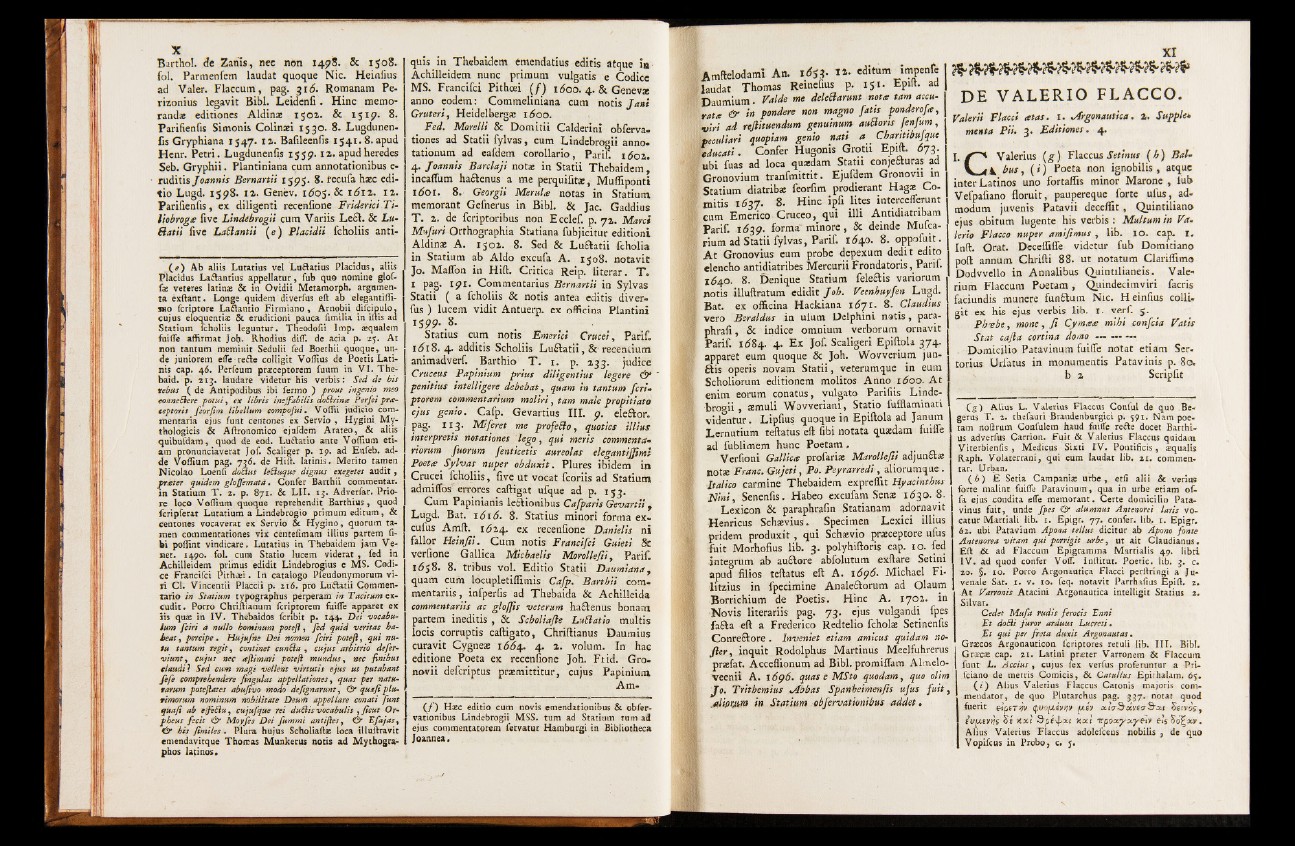 X
Barthol. de Zanis, nec non 1498. & 1508.
fol. Parmenſem laudat quoque Nic. Heinſius
ad Valer. Flaccum, pag. 316. Romanam Pe-
rizonius legavit Bibl. Leidenſi. Hinc memo-
randæ editiones Aldinæ 1502. & 1519. 8.
Pariſienſis Simonis Colinæi 1530. 8. Lugdunen-
ſis Gryphiana 1547. 12. Baſileenſis 1541. 8. apud
Henr. Petri. Lugdunenſis 1559. 12. apud heredes
Seb. Gryphii. Plantiniana cum annotationibus e-
ruditis Joannis Bernartii 1595. 8. recuſa hæc edi-
tio Lugd. 1598. 12. Genev. 1605. & 1612. 12.
Pariſienſis, ex diligenti recenſione Friderici Ti-
liobrogæ ſive Lindebrogii cum Variis Lect. & Lu-
ctatii ſive Lactantii (e) Placidii ſcholiis anti-
(e) Ab aliis Lutatius vel Luctatius Placidus, aliis
Placidus Lactantius appellatur, ſub quo nomine gloſ-
ſæ veteres latinæ & in Ovidii Metamorph. argumen-
ta exſtant. Longe quidem diverſus eſt ab elegantiſſi-
mo ſcriptore Lactantio Firmiano, Arnobii diſcipulo,
cujus eloquentiæ & eruditioni pauca ſimilia in iſtis ad
Statium ſcholiis leguntur. Theodoſii Imp. æqualem
fuiſſe affirmat Joh. Rhodius diſſ. de acia p. 25. At
non tantum meminit Sedulii ſed Boethii quoque, un-
de juniorem eſſe recte colligit Voſſius de Poetis Lati-
nis cap. 46. Perſeum præceptorem ſuum in VI. The-
baid. p. 213. laudare videtur his verbis: Sed de his
rebus (de Antipodibus ibi ſermo) prout ingenio meo
connectere potui, ex libris ineffabilis doctrinæ Perſei præ-
ceptoris ſeorſim libellum compoſui. Voſſii judicio com-
mentaria ejus ſunt centones ex Servio, Hygini My-
thologicis & Aſtronomico ejuſdem Arateo, & aliis
quibuſdam, quod de eod. Luctatio ante Voſſium eti-
am pronunciaverat Joſ. Scaliger p. 19. ad Euſeb. ad-
de Voſſium pag. 736. de Hiſt. latinis. Merito tamen
Nicolao Loenſi doctus lectuque dignus exegetes audit,
præter quidem gloſſemata. Confer Barthii commentar.
in Statium T. 2. p. 871. & LII. 13. Adverſar. Prio-
re loco Voſſium quoque reprehendit Barthius, quod
ſcripſerat Lutatium a Lindebrogio primum editum, &
centones vocaverat ex Servio & Hygino, quorum ta-
men commentationes vix centeſimam illius partem ſi-
bi poſſint vindicare. Lutatius in Thebaidem jam Ve-
net. 1490. fol. cum Statio lucem viderat, ſed in
Achilleidem primus edidit Lindebrogius e MS. Codi-
ce Franciſci Pithæi. In catalogo Pſeudonymorum vi-
ri Cl. Vincentii Placcii p. 216. pro Luctatii Commen-
tario in Statium typographus perperam in Tacitum ex-
cudit. Porro Chriſtianum ſcriptorem fuiſſe apparet ex
iis quæ in IV. Thebaidos ſcribit p. 144. Dei vocabu-
lum ſciri a nullo hominum poteſt, ſed quid veritas ha-
beat, percipe. Hujuſne Dei nomen ſciri poteſt, qui nu-
tu tantum regit, continet cuncta, cujus arbitrio deſer-
viunt, cujus nec æſtimari poteſt mundus, nec finibus
claudi? Sed cum magi vellent virtutis ejus ut putabant
ſeſe comprehendere ſingulas appellationes, quas per natu-
rarum poteſtates abuſivo modo deſignarunt, & quaſi plu-
rimorum nominum nobilitate Deum appellare conati ſunt
quaſi ab effectu, cujuſque rei ductis vocabulis, ſicut Or-
pheus fecit & Moyſes Dei ſummi antiſtes, & Eſajas,
& his ſimiles. Plura hujus Scholiaſtæ loca illuſtravit
emendavitque Thomas Munkerus notis ad Mythogra-
phos latinos.
quis in Thebaidem emendatius editis atque in
Achilleidem nunc primum vulgatis e Codice
MS. Franciſci Pithœi (f) 1600. 4. & Genevæ
anno eodem: Commeliniana cum notis Jani
Gruteri, Heidelbergæ 1600.
Fed. Morelli & Domitii Calderini obſerva-
tiones ad Statii ſylvas, cum Lindebrogii anno-
tationum ad eaſdem corollario, Pariſ. 1602.
4. Joannis Barclaji notæ in Statii Thebaidem,
incaſſum hactenus a me perquiſitæ, Muſſiponti
1601. 8. Georgii Merulæ notas in Statium
memorant Geſnerus in Bibl. & Jac. Gaddius
T. 2. de ſcriptoribus non Eccleſ. p. 72. Marci
Muſuri Orthographia Statiana ſubjicitur editioni
Aldinæ A. 1502. 8. Sed & Luctatii ſcholia
in Statium ab Aldo excuſa A. 1508. notavit
Jo. Maſſon in Hiſt. Critica Reip. literar. T.
1 pag. 191. Commentarius Bernartii in Sylvas
Statii (a ſcholiis & notis antea editis diver-
ſus) lucem vidit Antuerp. ex officina Plantini
1599. 8.
Statius cum notis Emerici Crucei, Pariſ.
1618. 4. additis Scholiis Luctatii, & recentium
animadverſ. Barthio T. 1. p. 233. judice
Cruceus Papinium prius diligentius legere &
penitius intelligere debebat, quam in tantum ſcri-
ptorem commentarium moliri, tam male propitiato
ejus genio. Caſp. Gevartius III. 9. elector.
pag. 113. Miſeret me profecto, quoties illius
interpretis notationes lego, qui meris commenta-
riorum ſuorum ſenticetis aureolas elegantiſſimi
Poetæ Sylvas nuper obduxit. Plures ibidem in
Crucei ſcholiis, ſive ut vocat ſcoriis ad Statium
admiſſos errores caſtigat uſque ad p. 153.
Cum Papinianis lectionibus Caſparis Gevartii,
Lugd. Bat. 1616. 8. Statius minori forma ex-
cuſus Amſt. 1624. ex recenſione Danielis ni
fallor Heinſii. Cum notis Franciſci Guieti &
verſione Gallica Michaelis Morolleſii, Pariſ.
1658. 8. tribus vol. Editio Statii Daumiana,
quam cum locupletiſſimis Caſp. Barthii com-
mentariis, inſperſis ad Thebaida & Achilleida
commentariis ac gloſſis veterum hactenus bonam
partem ineditis, & Scholiaſte Luctatio multis
locis corruptis caſtigato, Chriſtianus Daumius
curavit Cygneæ 1664. 4. 2. volum. In hac
editione Poeta ex recenſione Joh. Frid. Gro-
novii deſcriptus præmittitur, cujus Papinium
Am-
(f) Hæc editio cum novis emendationibus & obſer-
vationibus Lindebrogii MSS. tum ad Statium tum ad
ejus commentatorem ſervatur Hamburgi in Bibliotheca
Joannea.
XI
Amſtelodami An. 1653. 12. editum impenſe
laudat Thomas Reineſius p. 151. Epiſt. ad
Daumium. Valde me delectarunt notæ tam accu-
ratæ & in pondere non magno ſatis ponderoſæ,
viri ad reſtituendum genuinum auctoris ſenſum,
peculiari quopiam genio nati a Charitibuſque
educati. Confer Hugonis Grotii Epiſt. 673.
ubi ſuas ad loca quædam Statii conjecturas ad
Gronovium tranſmittit. Ejuſdem Gronovii in
Statium diatribæ ſeorſim prodierant Hagæ Co-
mitis 1637. 8. Hinc ipſi lites interceſſerunt
cum Emerico Cruceo, qui illi Antidiatribam
Pariſ. 1639. forma minore, & deinde Muſca-
rium ad Statii ſylvas, Pariſ. 1640. 8. oppoſuit.
At Gronovius eum probe depexum dedit edito
elencho antidiatribes Mercurii Frondatoris, Pariſ.
1640. 8. Denique Statium ſelectis variorum
notis illuſtratum edidit Joh. Veenhuyſen Lugd.
Bat. ex officina Hackiana 1671. 8. Claudius
vero Beraldus in uſum Delphini notis, para-
phraſi, & indice omnium verborum ornavit
Pariſ. 1684. 4. Ex Joſ. Scaligeri Epiſtola 374.
apparet eum quoque & Joh. Wovverium jun-
ctis operis novam Statii, veterumque in eum
Scholiorum editionem molitos Anno 1600. At
enim eorum conatus, vulgato Pariſiis Linde-
brogii, æmuli Wovveriani, Statio ſufflaminati
videntur. Lipſius quoque in Epiſtola ad Janum
Lernutium teſtatus eſt ſibi notata quædam fuiſſe
ad ſublimem hunc Poetam.
Verſioni Gallicæ proſariæ Marolleſii adjunctæ
notæ Franc. Gujeti, Po. Peyrarredi, aliorumque.
Italico carmine Thebaidem expreſſit Hyacinthus
Nini, Senenſis. Habeo excuſam Senæ 1630. 8.
Lexicon & paraphraſin Statianam adornavit
Henricus Schævius. Specimen Lexici illius
pridem produxit, qui Schævio præceptore uſus
fuit Morhofius lib. 3. polyhiſtoris cap. 10. ſed
integrum ab auctore abſolutum exſtare Setini
apud filios teſtatus eſt A. 1696. Michael Fi-
litzius in ſpecimine Analectorum ad Olaum
Borrichium de Poetis. Hinc A. 1702. in
Novis literariis pag. 73. ejus vulgandi ſpes
facta eſt a Frederico Redtelio ſcholæ Setinenſis
Conrectore. Inveniet etiam amicus quidam no-
ſter, inquit Rodolphus Martinus Meelfuhrerus
præfat. Acceſſionum ad Bibl. promiſſam Almelo-
veenii A. 1696. quas e MSto quodam, quo olim
Jo. Trithemius Abbas Spanheimenſis uſus fuit,
aliorum in Statium obſervationibus addet.
DE VALERIO FLACCO.
Valerii Flacci ætas. 1. Argonautica. 2. Supple-
menta Pii. 3. Editiones. 4.
I. C. Valerius (g) Flaccus Setinus (h) Bal-
bus, (i) Poeta non ignobilis, atque
inter Latinos uno fortaſſis minor Marone, ſub
Veſpaſiano floruit, paupereque forte uſus, ad-
modum juvenis Patavii deceſſit, Quintiliano
ejus obitum lugente his verbis: Multum in Va-
lerio Flacco nuper amiſimus, lib. 10. cap. 1.
Inſt. Orat. Deceſſiſſe videtur ſub Domitiano
poſt annum Chriſti 88. ut notatum Clariſſimo
Dodvvello in Annalibus Quintilianeis. Vale-
rium Flaccum Poetam, Quindecimviri ſacris
faciundis munere functum Nic. Heinſius colli-
git ex his ejus verbis lib. 1. verſ. 5.
Phœbe, mone, ſi Cymææ mihi conſcia Vatis
Stat caſta cortina domo — — —
Domicilio Patavinum fuiſſe notat etiam Ser-
torius Urſatus in monumentis Patavinis p. 80.
b 2 Scripſit
(g) Alius L. Valerius Flaccus Conſul de quo Be-
gerus T. 2. theſauri Brandenburgici p. 591. Nam poe-
tam noſtrum Conſulem haud fuiſſe recte docet Barthi-
us adverſus Carrion. Fuit & Valerius Flaccus quidam
Viterbienſis, Medicus Sixti IV. Pontificis, æqualis
Raph. Volaterrani, qui eum laudat lib. 21. commen-
tar. Urban.
(h) E Setia Campaniæ urbe, etſi alii & verius
forte malint fuiſſe Patavinum, qua in urbe etiam oſ-
ſa ejus condita eſſe memorant. Certe domicilio Pata-
vinus fuit, unde ſpes & alumnus Antenorei laris vo-
catur Martiali lib. 1. Epigr. 77. confer. lib. 1. Epigr.
62. ubi Patavium Apona tellus dicitur ab Apono fonte
Antenorea vitam qui porrigit urbe, ut ait Claudianus.
Eſt & ad Flaccum Epigramma Martialis 49. libri
IV. ad quod confer Voſſ. Inſtitut. Poetic. lib. 3. c.
20. §. 10. Porro Argonautica Flacci perſtringi a Ju-
venale Sat. 1. v. 10. ſeq. notavit Parrhaſius Epiſt. 2.
At Varronis Atacini Argonautica intelligit Statius 2.
Silvar.
Cedet Muſa rudis ferocis Enni
Et docti furor arduus Lucreti.
Et qui per freta duxit Argonautas.
Græcos Argonauticon ſcriptores retuli lib. III. Bibl.
Græcæ cap. 21. Latini præter Varronem & Flaccum
ſunt L. Accius, cujus ſex verſus proferuntur a Pri-
ſciano de metris Comicis, & Catullus Epithalam. 65.
(i) Alius Valerius Flaccus Catonis majoris com-
mendator, de quo Plutarchus pag. 337. notat quod
fuerit
Alius Valerius Flaccus adoleſcens nobilis, de quo
Vopiſcus in Probo, c. 5.